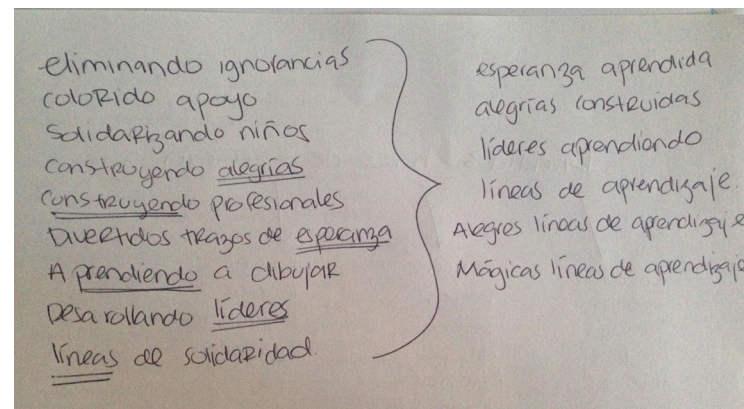 eliminando ignorancias
colorido apoyo
solidarizando niños
construyendo alegrías
construyendo profesionales
Divertidos trazos de esperanza
Aprendiendo a dibujar
Desarollando líderes
líneas de solidaridad.
esperanza aprendida
alegrías construidas
líderes aprendiendo
líneas de aprendizaje.
Alegres líneas de aprendizaje
Mágicas líneas de aprendizaje